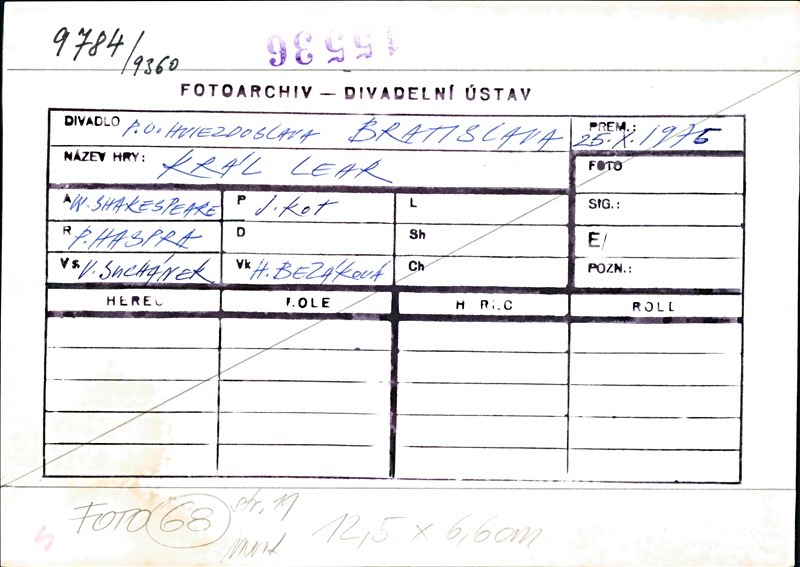 9784/9360
15536
FOTOARCHIV — DIVADELNÍ ÚSTAV
DIVADLO P.O. HVIEZDOSLAVA BRATISLAVA
PREM.: 25.X.1975
NÁZEV HRY: KRÁL LEAR
FOTO
A W. SHAKESPEARE P J. KOT L
SIG.:
R P. HASPRA D Sh
E/
Vs V. SUCHÁNEK Vk H. BEZÁKOVÁ Ch
POZN.:
HEREC ROLE HEREC ROLE
FOTO 68 str. 19
12,5 x 6,6cm